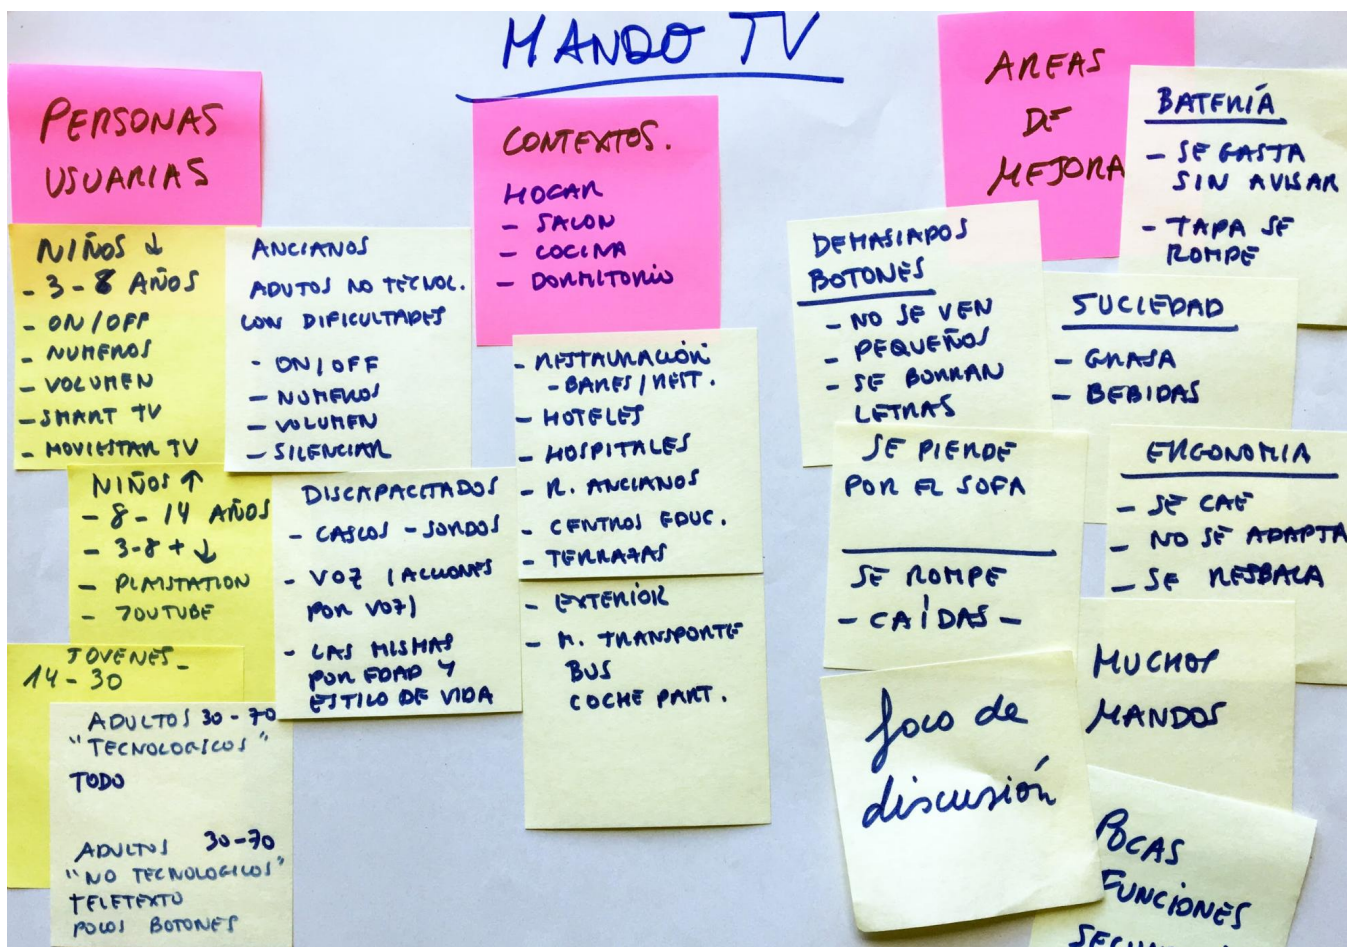 MANDO TV
PERSONAS
USUARIAS
NIÑOS ↓
- 3 - 8 AÑOS
- ON/OFF
- NUMEROS
- VOLUMEN
- SMART TV
- MOVISTAR TV
NIÑOS ↑
- 8 - 14 AÑOS
- 3-8 + ↓
- PLAYSTATION
- YOUTUBE
JOVENES -
14 - 30
ADULTOS 30 - 70
"TECNOLOGICOS"
TODO
ADULTOS 30-70
"NO TECNOLOGICOS"
TELETEXTO
POCOS BOTONES
ANCIANOS
ADUTOS NO TECNOL.
CON DIFICULTADES
- ON/OFF
- NUMEROS
- VOLUMEN
- SILENCIAR
DISCAPACITADOS
- CASCOS - SORDOS
- VOZ (ACCIONES
POR VOZ)
- LAS MISMAS
POR EDAD Y
ESTILO DE VIDA
CONTEXTOS.
HOGAR
- SALON
- COCINA
- DORMITORIO
- RESTAURACIÓN
- BARES/REST.
- HOTELES
- HOSPITALES
- R. ANCIANOS
- CENTROS EDUC.
- TERRAZAS
- EXTERIOR
- M. TRANSPORTE
BUS
COCHE PART.
AREAS
DE
MEJORA
BATERÍA
- SE GASTA
SIN AVISAR
- TAPA SE
ROMPE
DEMASIADOS
BOTONES
- NO SE VEN
- PEQUEÑOS
- SE BORRAN
LETRAS
SUCIEDAD
- GRASA
- BEBIDAS
SE PIERDE
POR EL SOFA
SE ROMPE
- CAÍDAS -
ERGONOMIA
- SE CAE
- NO SE ADAPTA
- SE RESBALA
MUCHOS
MANDOS
foco de
discusión
POCAS
FUNCIONES